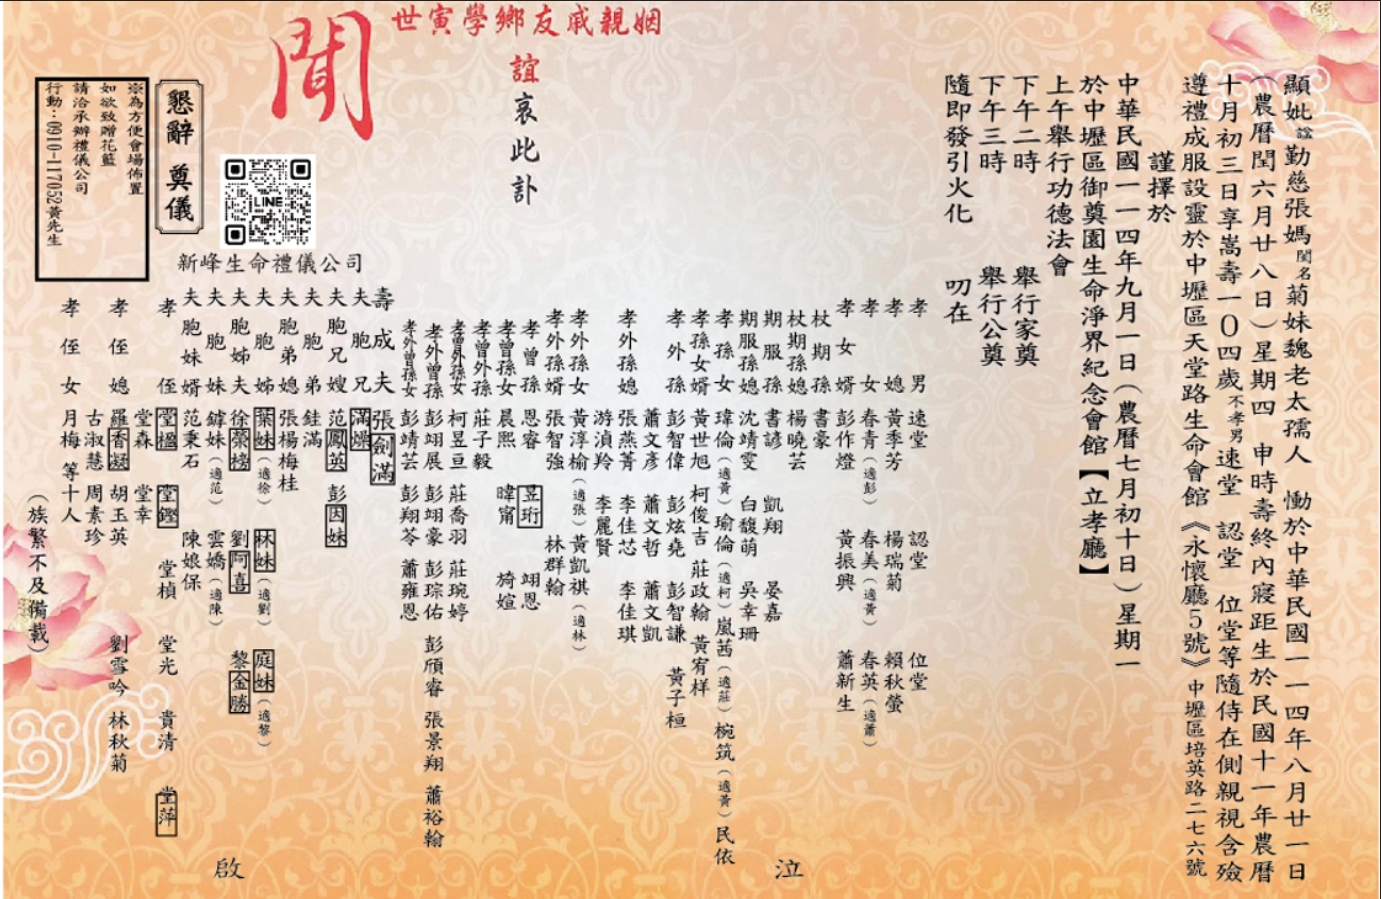 顯妣諡勤慈張媽閨名菊妹魏老太孺人　慟於中華民國一一四年八月廿一日
（農曆閏六月廿八日）星期四　申時壽終內寢距生於民國十一年農曆
十月初三日享嵩壽一0四歲不孝男速堂　認堂　位堂等隨侍在側親視含殮
遵禮成服設靈於中壢區天堂路生命會館《永懷廳5號》中壢區培英路二七六號
謹擇於
中華民國一一四年九月一日（農曆七月初十日）星期一
於中壢區御奠園生命淨界紀念會館【立孝廳】
上午舉行功德法會
下午二時　舉行家奠
下午三時　舉行公奠
隨即發引火化　叨在
姻親戚友鄉學寅世
誼哀此訃
聞
孝男　速堂　認堂　位堂
孝媳　黃季芳　楊瑞菊　賴秋螢
孝女　春青（適彭）　春美（適黃）　春英（適蕭）
孝女婿　彭作燈　黃振興　蕭新生
杖期孫　書豪
杖期孫媳　楊曉芸
期服孫　書諺　凱翔　晏嘉
期服孫媳　沈靖雯　白馥萌　吳幸珊
孝孫女　瑋倫（適黃）瑜倫（適柯）嵐茜（適莊）椀筑（適黃）民依
孝孫女婿　黃世旭　柯俊吉　莊政翰　黃宥样
孝外孫　彭智偉　彭炫堯　彭智謙　黃子桓
蕭文彥　蕭文哲　蕭文凱
孝外孫媳　張燕菁　李佳芯　李佳琪
游湞羚　李麗賢
孝外孫女　黃淳榆（適張）黃凱祺（適林）
孝外孫婿　張智強　林群翰
孝曾孫　恩睿　昱珩　翊恩
孝曾孫女　晨熙　暐甯　旑媗
孝曾外孫　莊子毅
孝曾外孫女　柯昱亘　莊喬羽　莊琬婷
孝外曾孫　彭翊展　彭翊豪　彭琮佑　彭頎睿　張景翔　蕭裕翰
孝外曾孫女　彭靖芸　彭翔苓　蕭雍恩
壽成夫　張劍滿
夫胞兄　滿爏
夫胞兄嫂　范鳳英　彭因妹
夫胞弟　銈滿
夫胞弟媳　張楊梅桂
夫胞姊　葉妹（適徐）　林妹（適劉）　庭妹（適黎）
夫胞姊夫　徐榮榜　劉阿喜　黎金勝
夫胞妹　鎼妹（適范）　雲嬌（適陳）
夫胞妹婿　范秉石　陳娘保
孝侄　堂楹　堂鏗　堂楨　堂光　貴清　堂萍
堂森　堂幸
孝侄媳　羅香凝　胡玉英　劉雪吟　林秋菊
古淑慧　周素珍
孝侄女　月梅　等十人
（族繁不及備載）
泣　啟
懇辭　奠儀
LINE
新峰生命禮儀公司
※為方便會場佈置
如欲致贈花籃
請洽承辦禮儀公司
行動：0910-117052黃先生